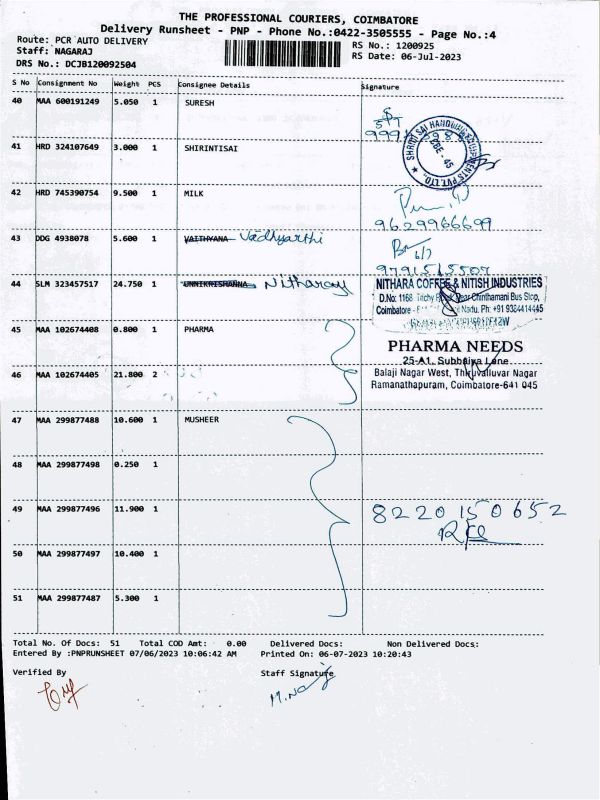 THE PROFESSIONAL COURIERS, COIMBATORE
Delivery Runsheet - PNP - Phone No.:0422-3505555 - Page No.:4
Route: PCR AUTO DELIVERY
Staff: NAGARAJ
DRS No.: DCJB120092504
RS No.: 1200925
RS Date: 06-Jul-2023
S No Consignment No Weight PCS Consignee Details Signature
40 MAA 600191249 5.050 1 SURESH
41 HRD 324107649 3.000 1 SHIRINTISAI
42 HRD 745390754 9.500 1 MILK
9629966699
43 DDG 4938078 5.600 1 VAITHYANA Vadhyarthi
6/7
9791515507
44 SLM 323457517 24.750 1 UNNIKRISHNNA
NITHARA COFFEE & NITISH INDUSTRIES
D.No: 1168, Trichy Road, Near Chinthamani Bus Stop,
Coimbatore - Nadu, Ph: +91 9384414445
45 MAA 102674408 0.800 1 PHARMA
PHARMA NEEDS
25-A1, Subbaiya Lane
46 MAA 102674405 21.800 2
Balaji Nagar West, Thiruvalluvar Nagar
Ramanathapuram, Coimbatore-641 045
47 MAA 299877488 10.600 1 MUSHEER
48 MAA 299877498 0.250 1
49 MAA 299877496 11.900 1
8220150652
50 MAA 299877497 10.400 1
51 MAA 299877487 5.300 1
Total No. Of Docs: 51 Total COD Amt: 0.00 Delivered Docs: Non Delivered Docs:
Entered By :PNPRUNSHEET 07/06/2023 10:06:42 AM Printed On: 06-07-2023 10:20:43
Verified By Staff Signature